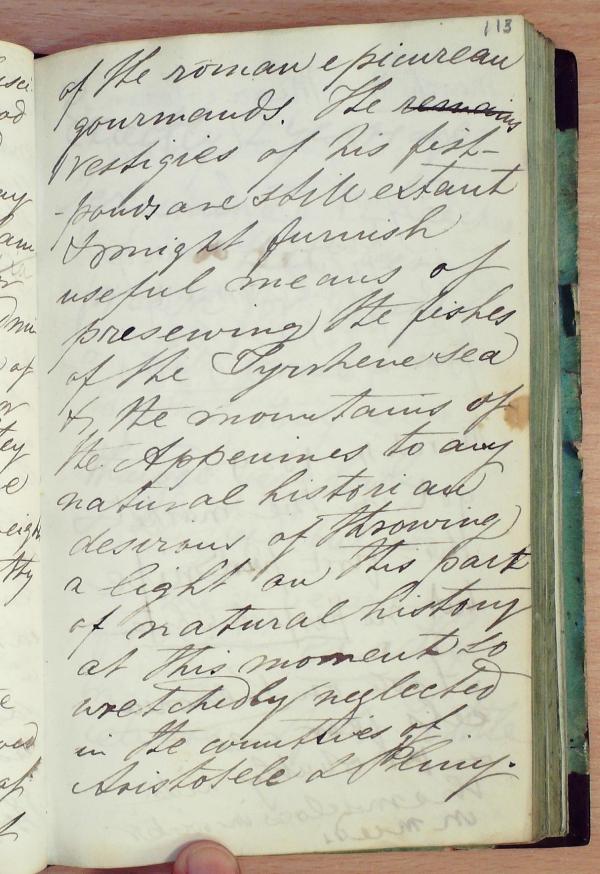 113
of the roman epicurean
gourmands. The remains
vestigies of his fish-
-ponds are still extant
& might furnish
useful means of
preserving the fishes
of the Tyrrhene sea
& the mountains of
the Appenines to any
natural historian
desirous of throwing
a light on this part
of natural history
at this moment so
wretchedly neglected
in the countries of
Aristotele & Pliny.